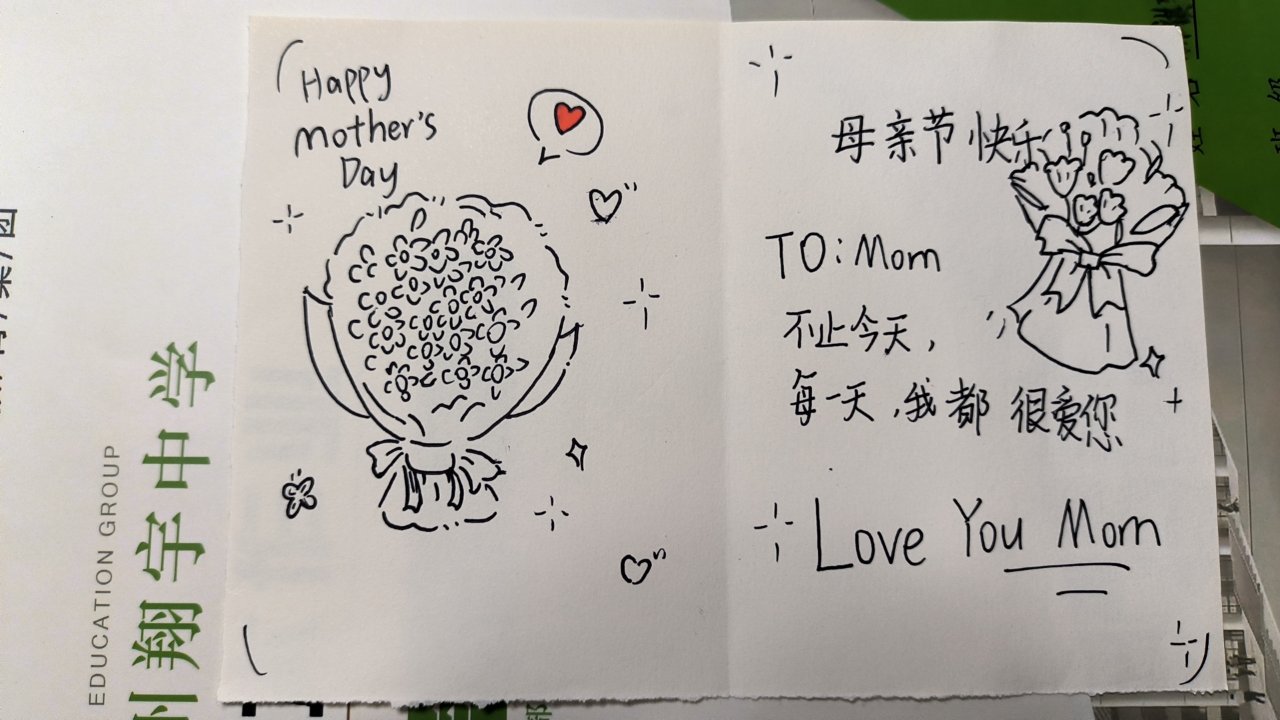 Happy
mother's
Day
母亲节快乐
TO: Mom
不止今天,
每一天,我都 很爱您
Love You Mom
EDUCATION GROUP
州翔宇中学